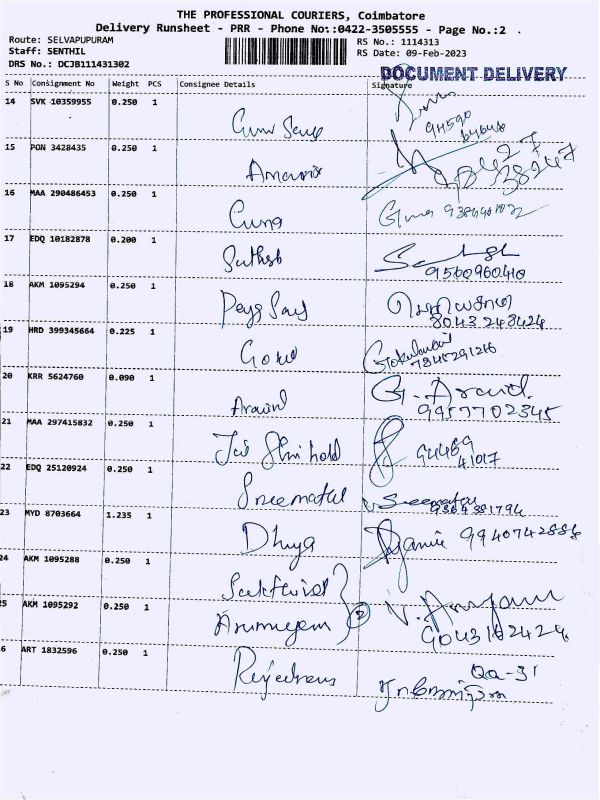 THE PROFESSIONAL COURIERS, Coimbatore
Delivery Runsheet - PRR - Phone No.:0422-3505555 - Page No.:2
Route: SELVAPUPURAM RS No.: 1114313
Staff: SENTHIL RS Date: 09-Feb-2023
DRS No.: DCJB111431302
DOCUMENT DELIVERY
S No Consignment No Weight PCS Consignee Details Signature
14 SVK 10359955 0.250 1
94590
64648
15 PON 3428435 0.250 1
38247
16 MAA 290486453 0.250 1 Guna Guna
17 EDQ 10182878 0.200 1 Sathish
9500960410
18 AKM 1095294 0.250 1
8043248424
19 HRD 399345664 0.225 1 Gokul
7845291216
20 KRR 5624760 0.090 1 Aravind G. Aravind.
9957702345
21 MAA 297415832 0.250 1 94489
41017
22 EDQ 25120924 0.250 1
9364381794
23 MYD 8703664 1.235 1 Dhuya 9940742888
24 AKM 1095288 0.250 1
25 AKM 1095292 0.250 1 Arumugam 2
9043102424
6 ART 1832596 0.250 1